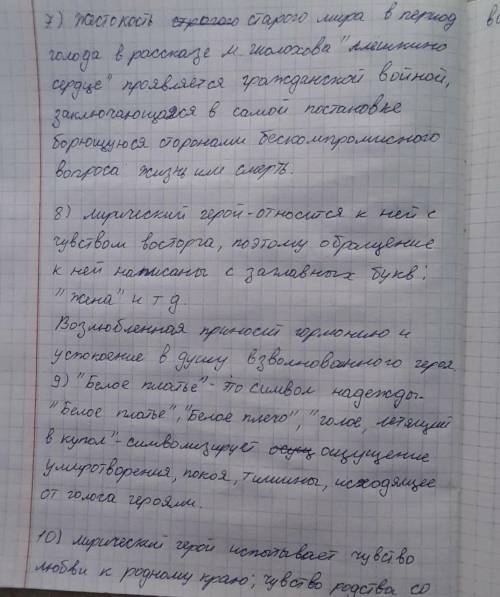 7) Жестокость старого мира в период
голода в рассказе М. Шолохова "Алешкино
сердце" проявляется гражданской войной,
заключающаяся в самой постановке
борющуюся сторонами бескомпромисного
вопроса жизнь или смерть.
8) лирический герой - относится к ней с
чувством восторга, поэтому обращение
к ней написаны с заглавных букв:
"жена" и т д.
Возлюбленная приносит гормонию и
успокоение в душу взволнованного героя.
9) "Белое платье" - то символ надежды
"Белое платье", "Белое плечо", "голос, летящий
в купол" - символизирует ощущение
умиротворения, покоя, тишины, исходящее
от голоса героями.
10) лирический герой испытывает чувство
любви к родному краю; чувство родства со